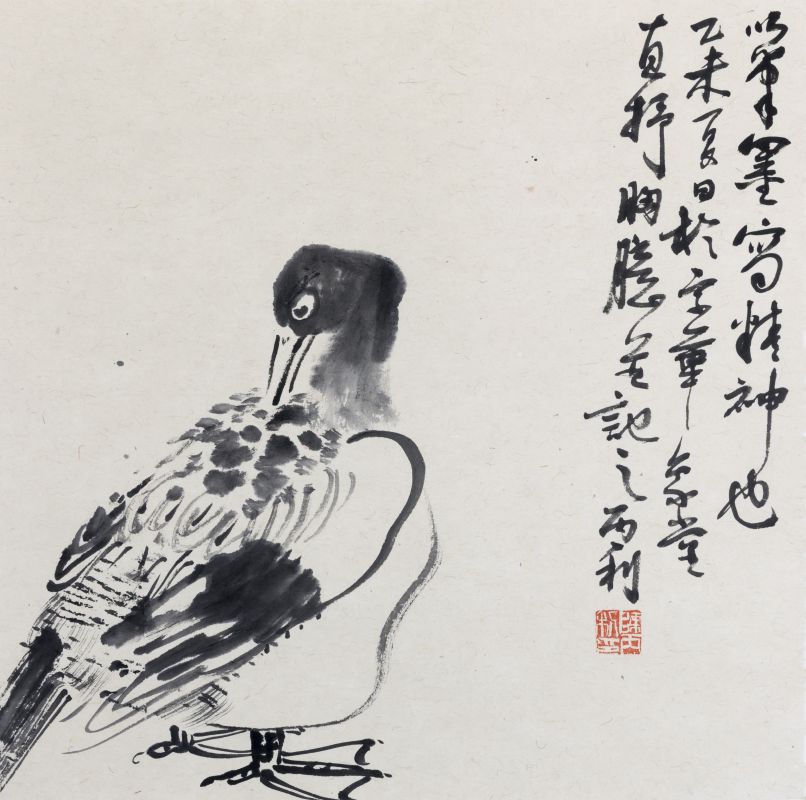 以筆墨寫精神也
乙未夏日於京華象堂
直抒胸臆並記之丙利
陳丙利印